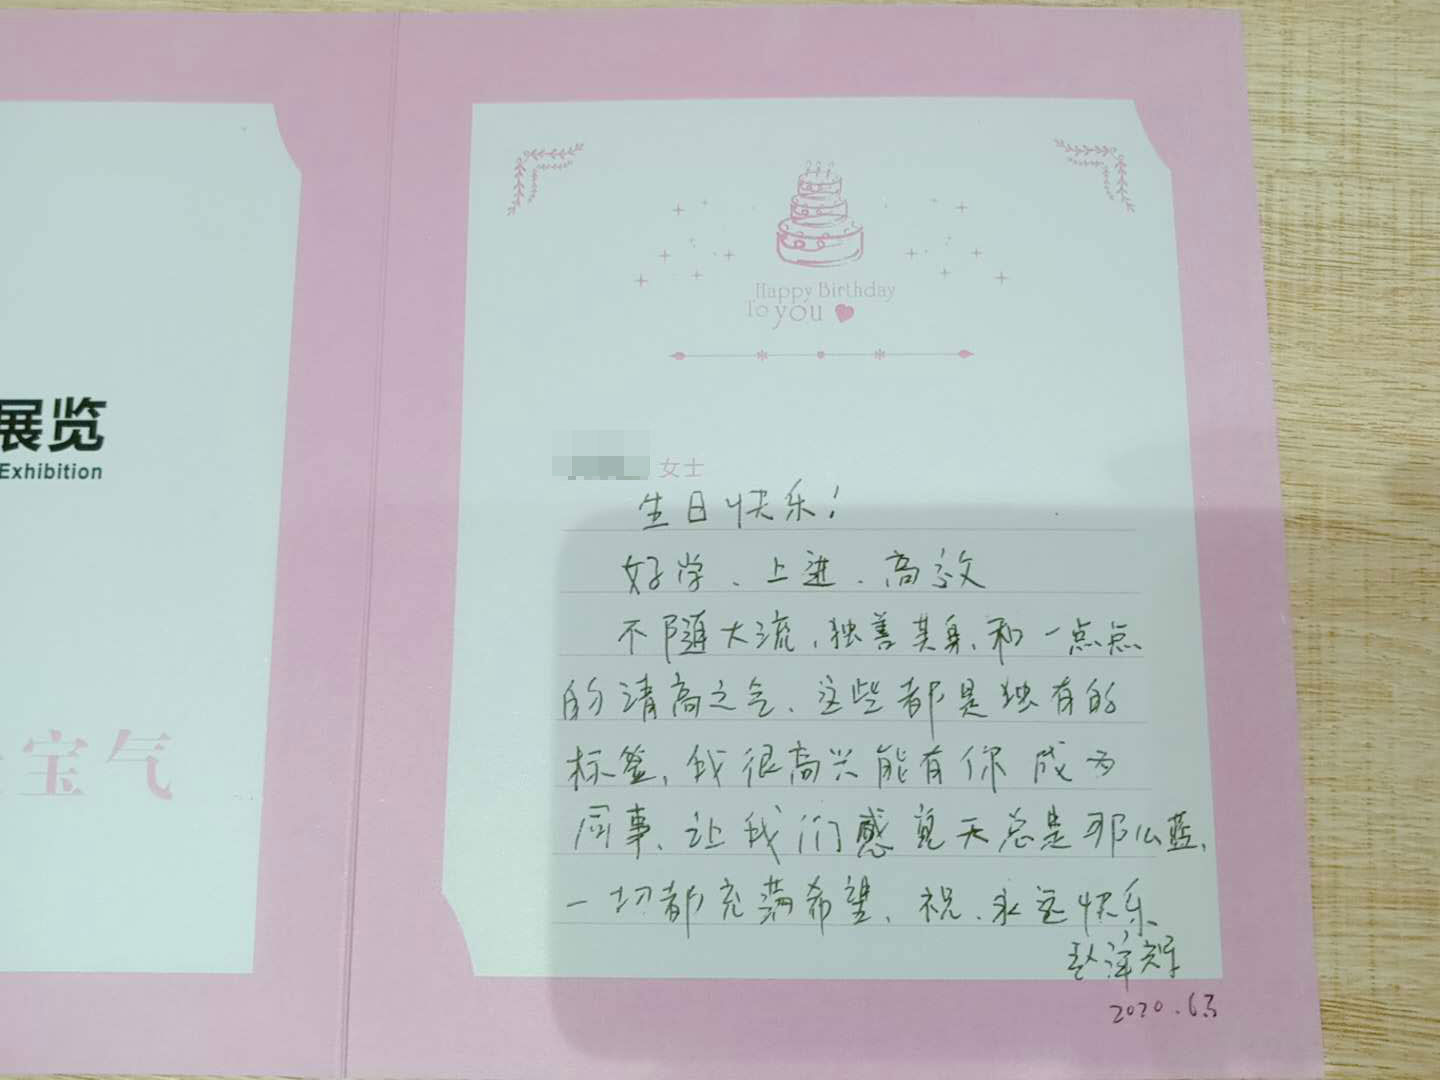 展览
Exhibition
宝气
Happy Birthday
To you
女士
生日快乐!
好学、上进、高效
不随大流、独善其身、和一点点
的清高之气、这些都是独有的
标签,我很高兴能有你成为
同事、让我们感觉天总是那么蓝、
一切都充满希望、祝、永远快乐
赵泽辉
2020.6.3